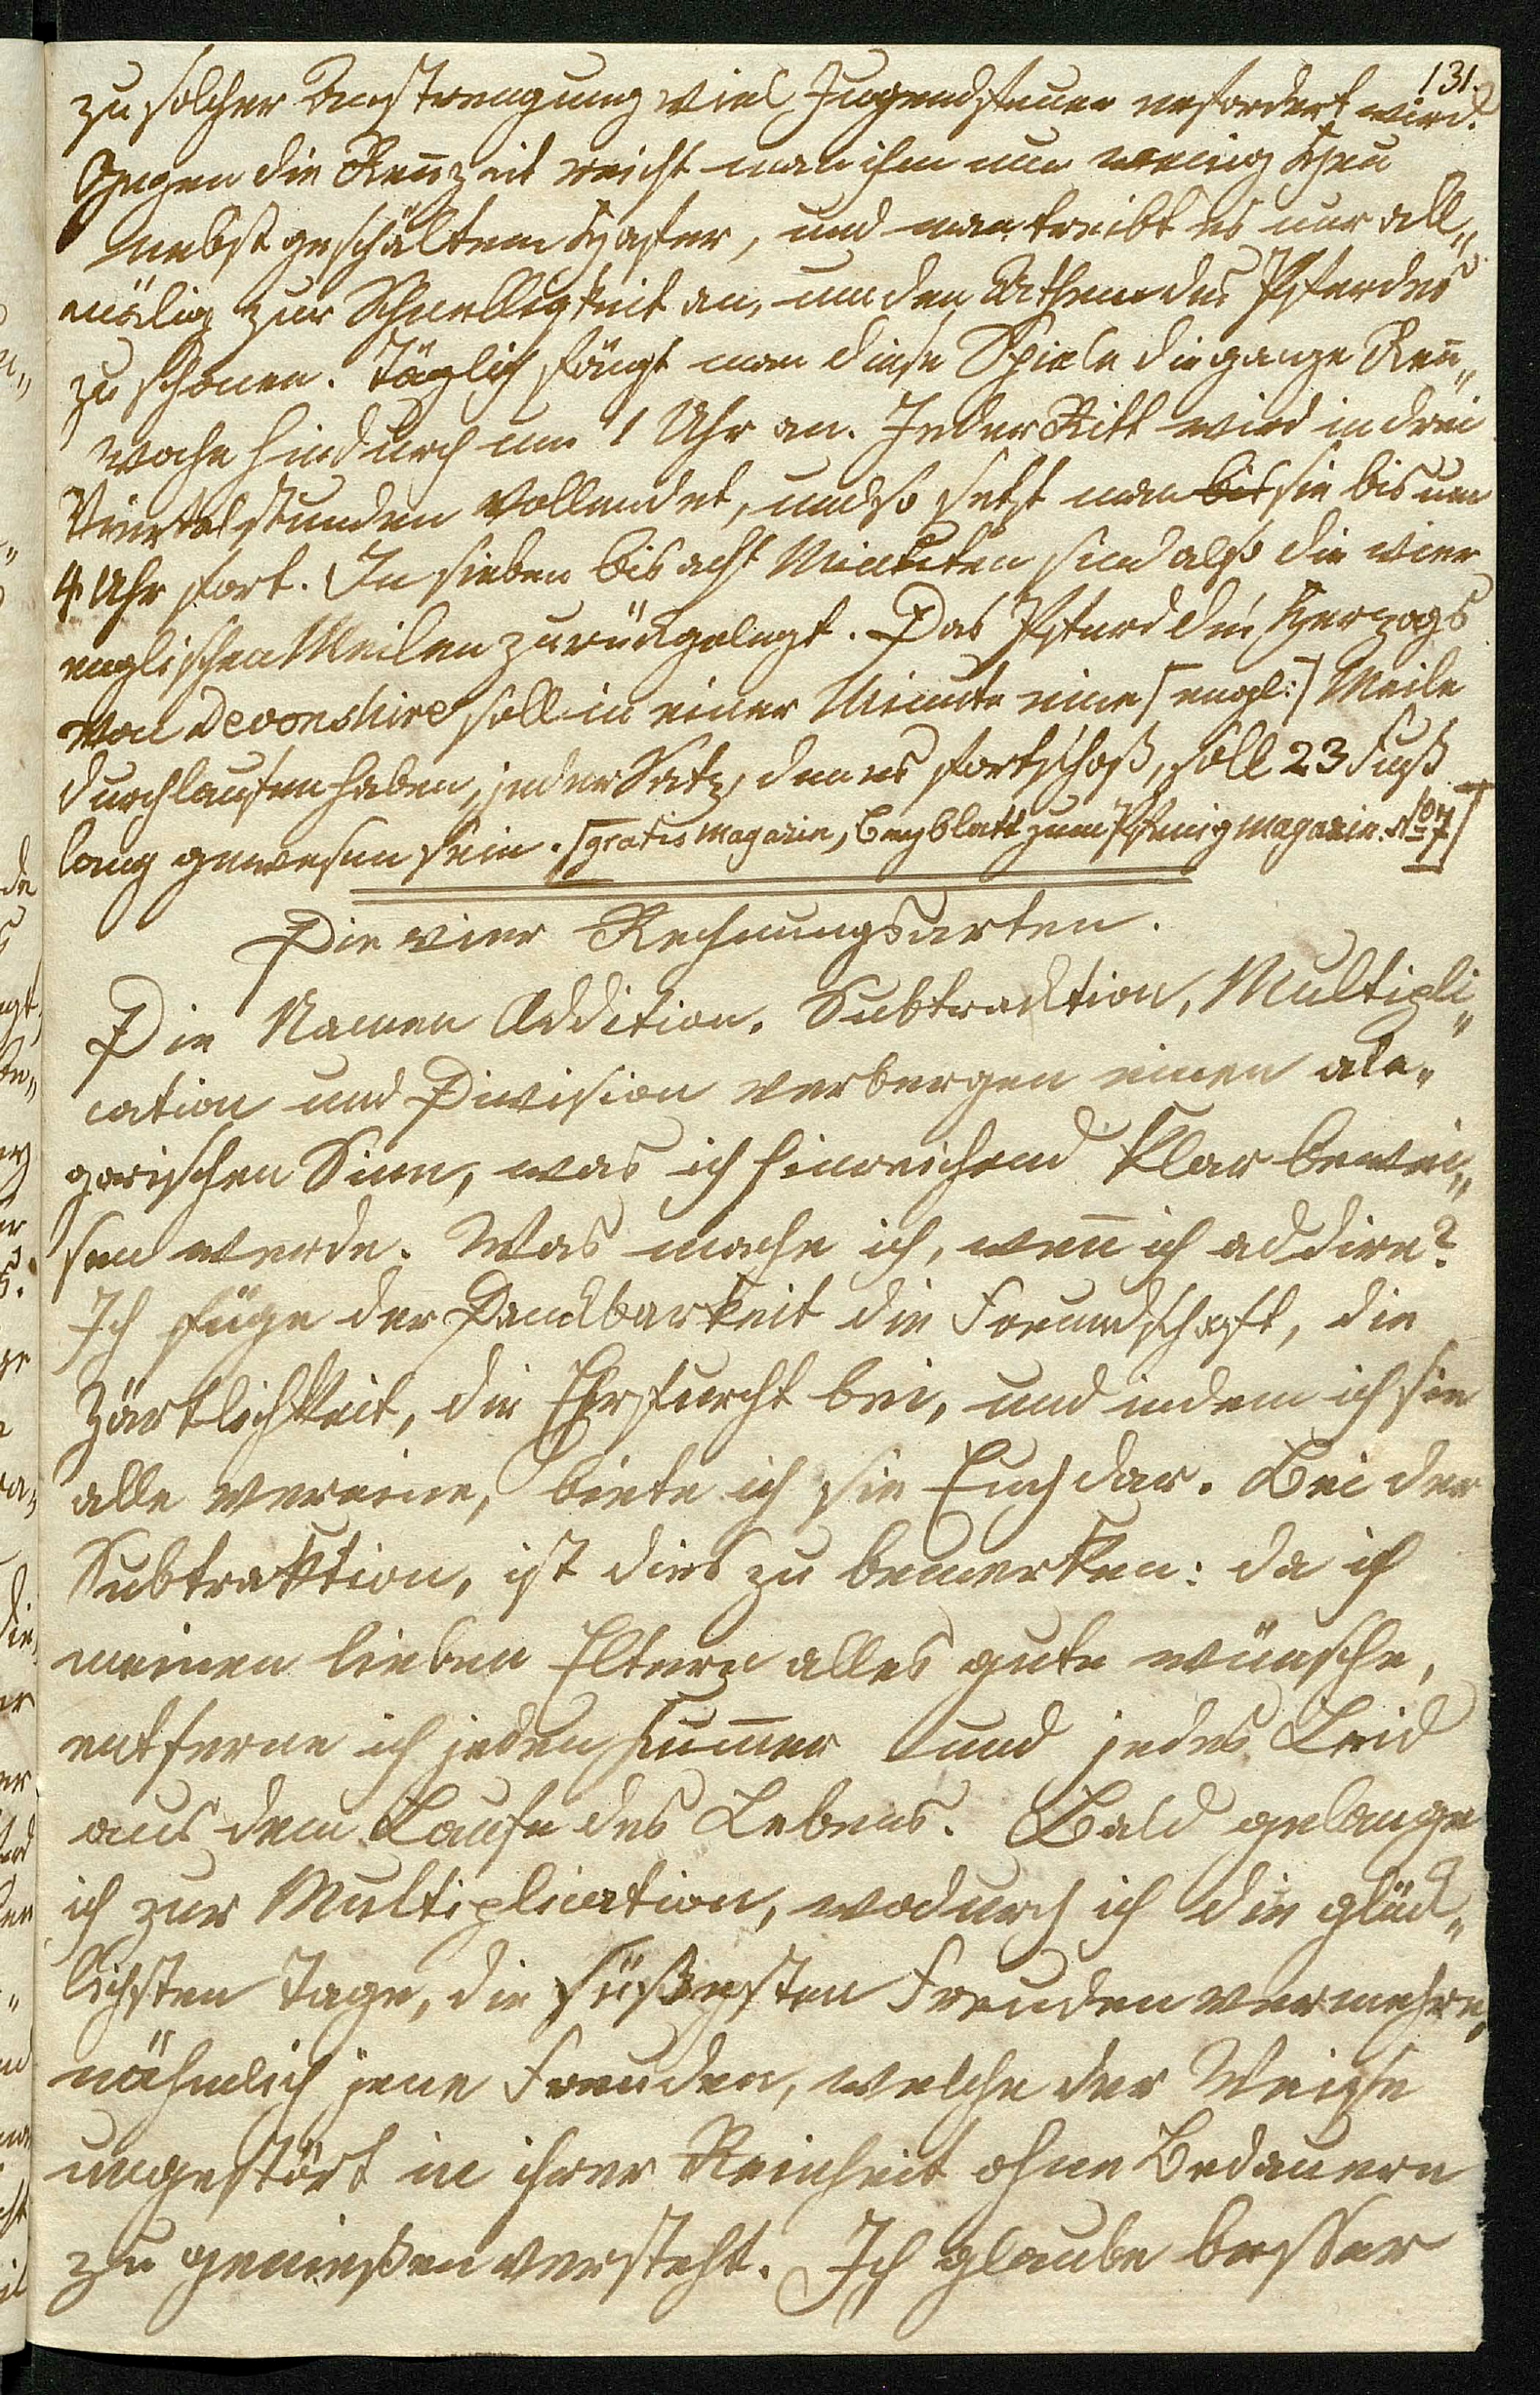 131.
zu solcher Anstrengung viel Jugendfeuer erfordert wird.
Gegen die Reñzeit reicht man ihm nur wenig Heu
nebst geschältem Hafer, und man treibt es nur all„
mälig zur Schnelligkeit an, um den Athem des Pferdes
zu schonen. Täglich fängt man diese Spiele die ganze Reñ„
woche hindurch um 1 Uhr an. Jeder Ritt wird in drei
Viertelstunden vollendet, und so setzt man bis sie bis um
4 Uhr fort. In sieben bis acht Minuten sind also die vier
englischen Meilen zurückgelegt. Das Pferd des Herzogs
von Devonshire soll in einer Minute eine [engl:] Meile
durchlaufen haben, jeder Satz, den es fortschoß, soll 23 Fuß
lang gewesen sein. [gratis Magazin, Beyblatt zum Pfenigmagazin. No 7]
Die vier Rechnungsarten.
Die Namen Addition, Subtracktion, Multipli„
cation und Division verbergen einen ale„
gorischen Sinn, was ich hinreichend klar bewei„
sen werde. Was mache ich, weñ ich addire?
Ich füge der Danckbarkeit die Freundschaft, die
Zärtlichkeit, die Ehrfurcht bei, und indem ich sie
alle vereine, biete ich sie Euch dar. Bei der
Subtraktion, ist dies zu bemerken: da ich
meinen lieben Eltern alles gute wünsche,
entferne ich jeden Kum̃er und jedes Leid
aus dem Laufe des Lebens. Bald gelange
ich zur Multiplication, wodurch ich die glück„
lichsten Tage, die süßesten Freuden vermehre,
nähmlich jene Freuden, welche der Weise
ungestört in ihrer Reinheit ohne Bedauern
zu genießen versteht. Ich glaube besser